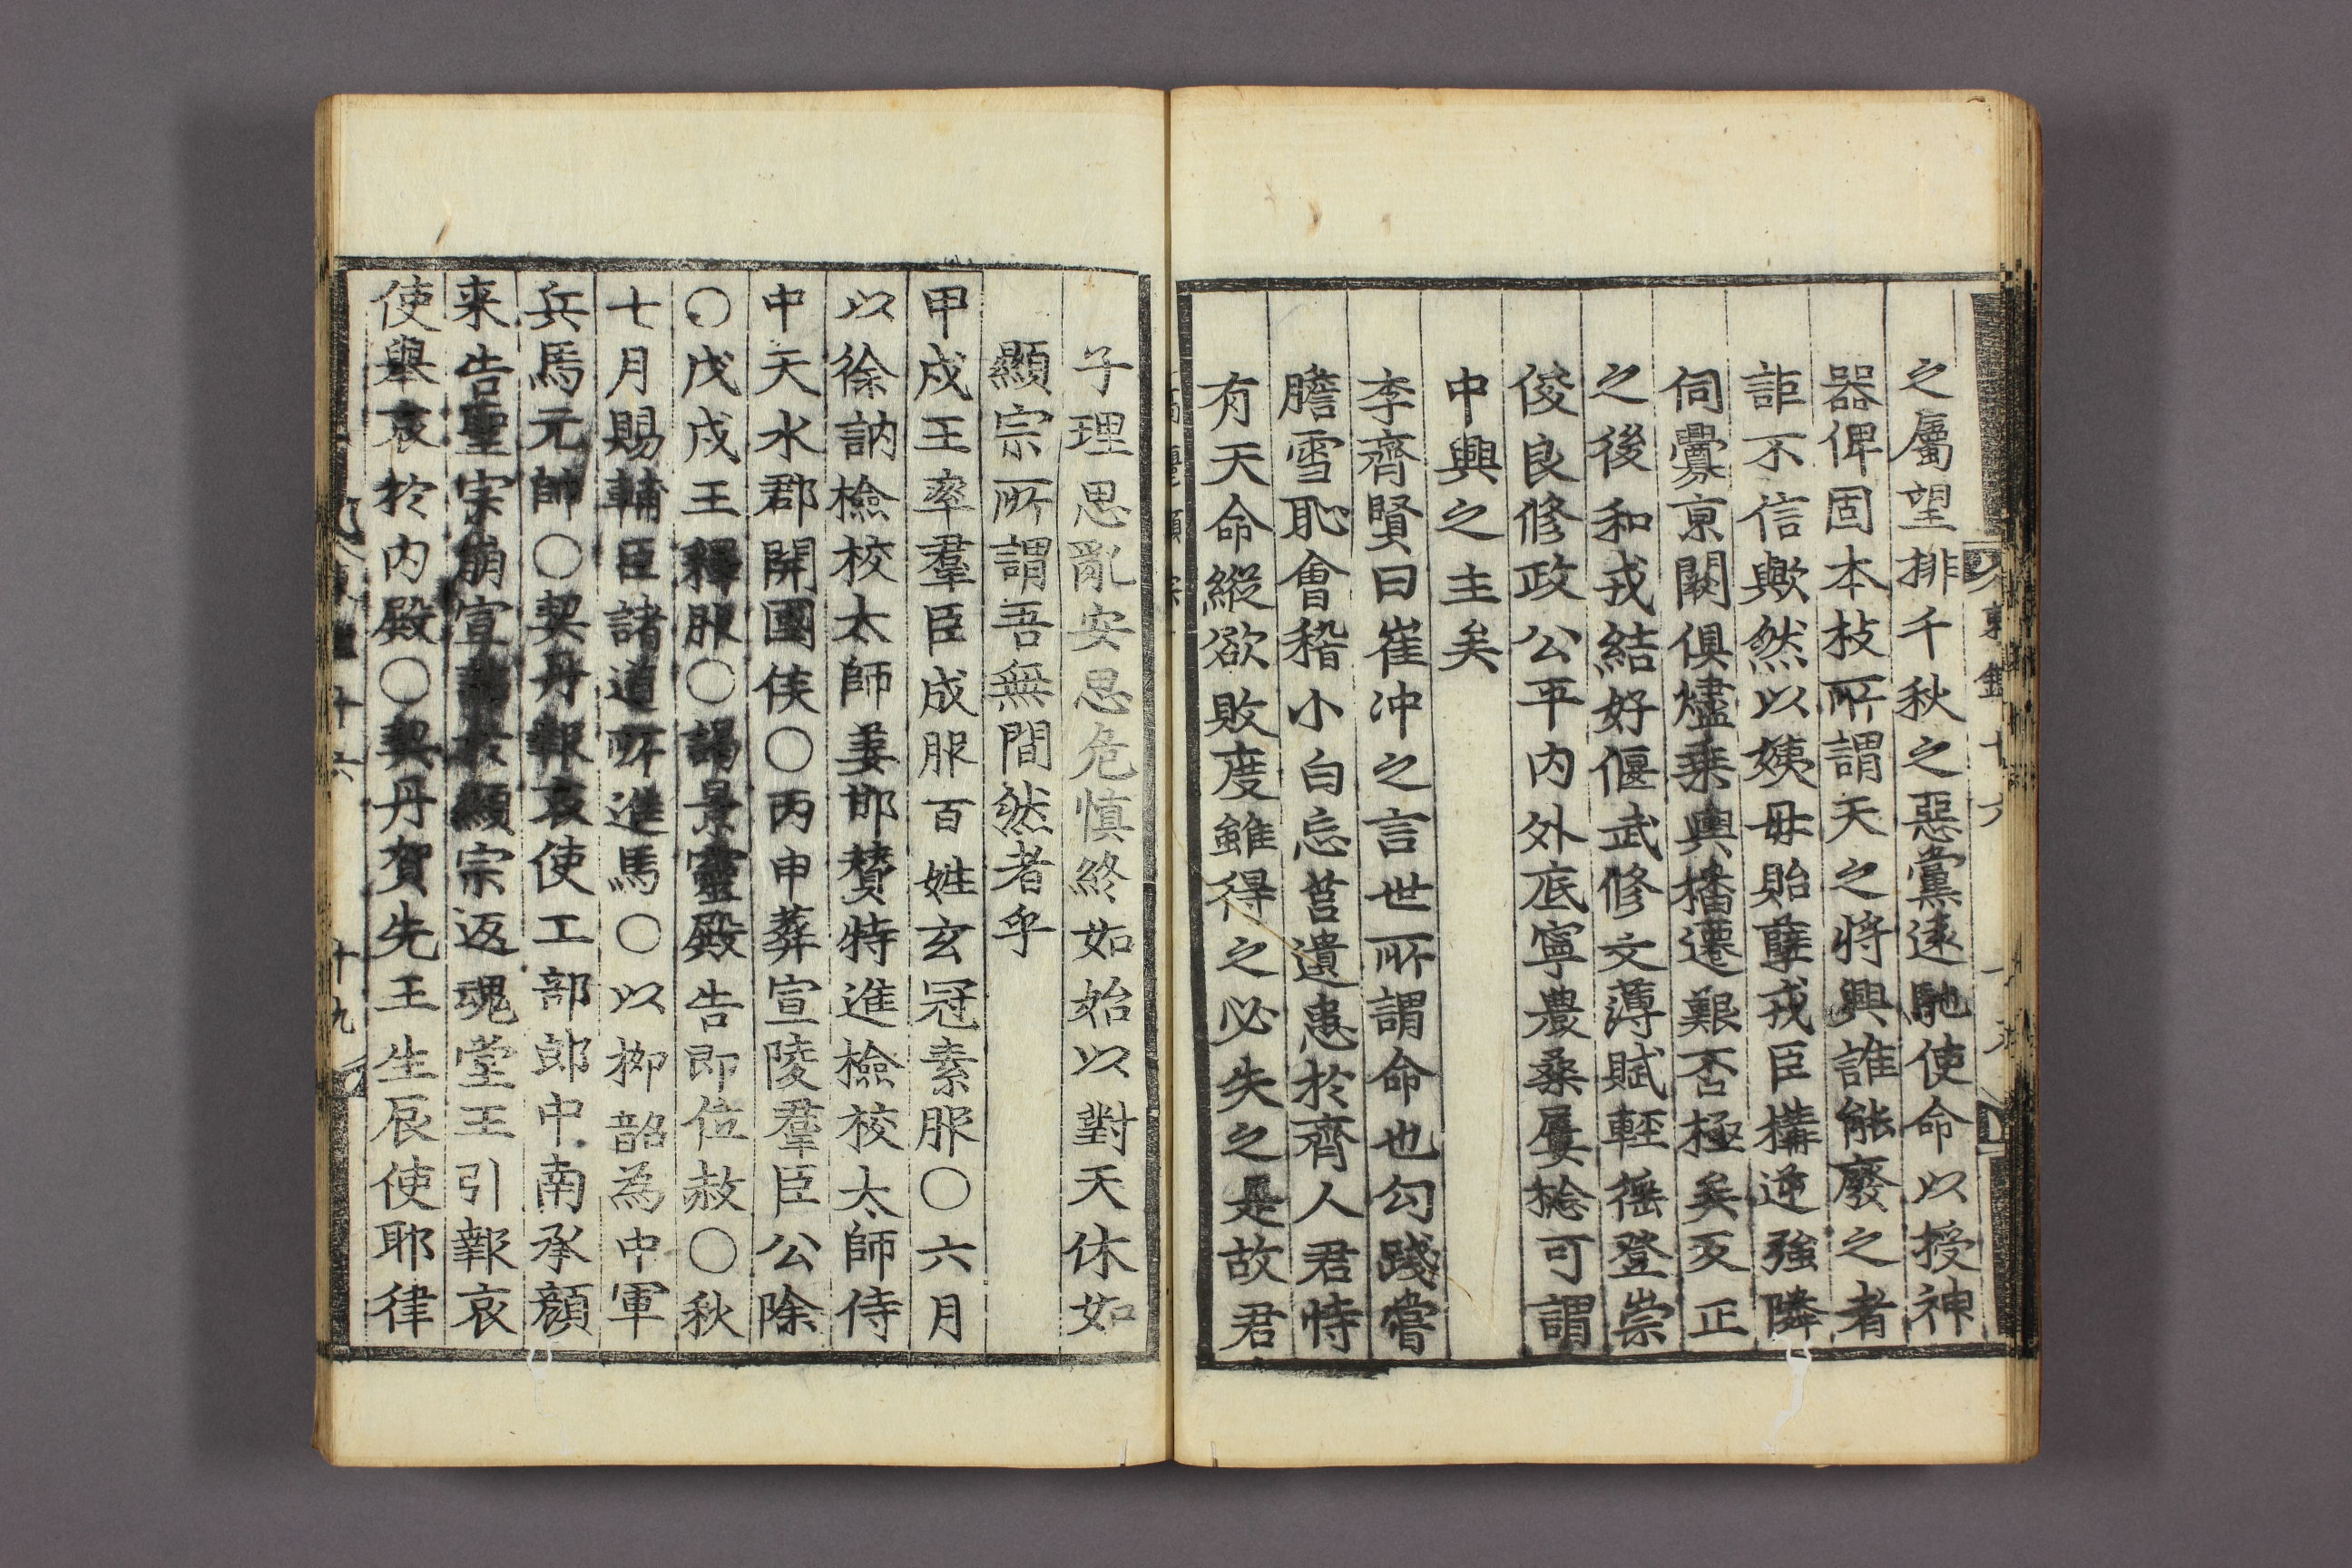 之屬望排千秋之惡黨遠馳使命以授神
器俾固本枝所謂天之將興誰能廢之者
詎不信歟然以姨母貽孽戎臣搆逆強隣
伺釁京闕俱燼乗輿播遷艱否極矣反正
之後和戎結好偃武修文薄賦輕徭登崇
俊良修政公平内外底寧農桑屢捻可謂
中興之主矣
李齊賢曰崔冲之言世所謂命也勾踐嘗
膽雪恥會稽小白忘莒遺患於齊人君恃
有天命縱欲敗度雖得之必失之是故君
子理思亂安思危慎終如始以對天休如
顯宗所謂吾無間然者乎
甲戍王率羣臣成服百姓玄冠素服〇六月
以徐訥檢校太師姜邯贊特進檢校太師侍
中天水郡開國侯〇丙申葬宣陵羣臣公除
〇戊戍王釋服〇謁景靈殿告即位赦〇秋
七月賜輔臣諸道所進馬〇以柳韶為中軍
兵馬元帥〇契丹報哀使工部郎中南承顔
来告聖宗崩宣詔於顯宗返魂堂王引報哀
使舉哀於内殿〇契丹賀先王生辰使耶律
十六
十九